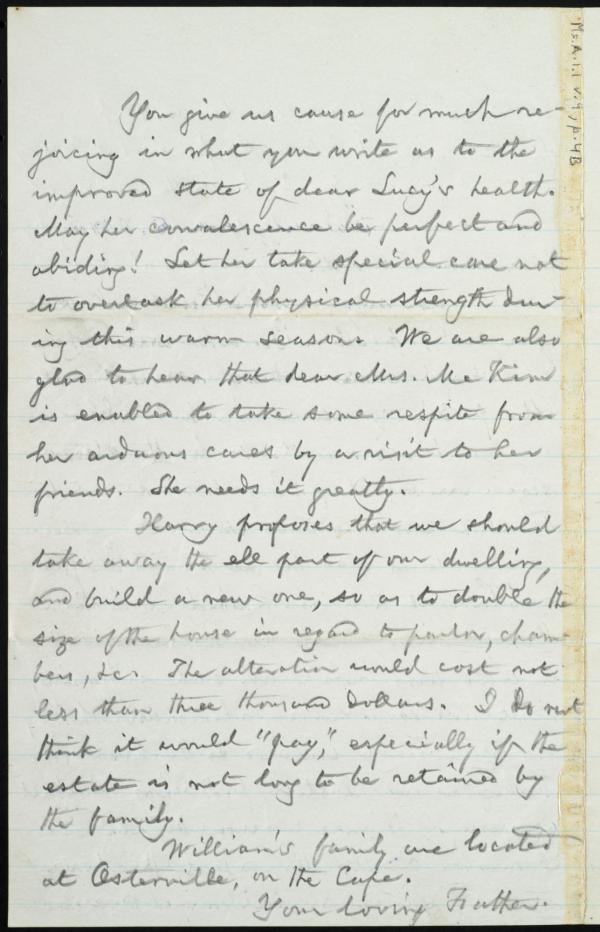 You give us cause for much re-
joicing in what you write as to the
improved state of dear Lucy's health.
May her convalescence be perfect and
abiding! Let her take special care not
to overtask her physical strength dur-
ing this warm season. We are also
glad to hear that dear Mrs. Mc Kim
is enabled to take some respite from
her arduous cares by a visit to her
friends. She needs it greatly.
Harry proposes that we should
take away the ell part of our dwelling,
and build a new one, so as to double the
size of the house in regard to parlor, cham-
bers, &c. The alteration would cost not
less than three thousand dollars. I do not
think it would "pay," especially if the
estate is not long to be retained by
the family.
William's family are located
at Osterville, on the Cape.
Your loving Father.
Ms.A.1.1 v.7, p.4B